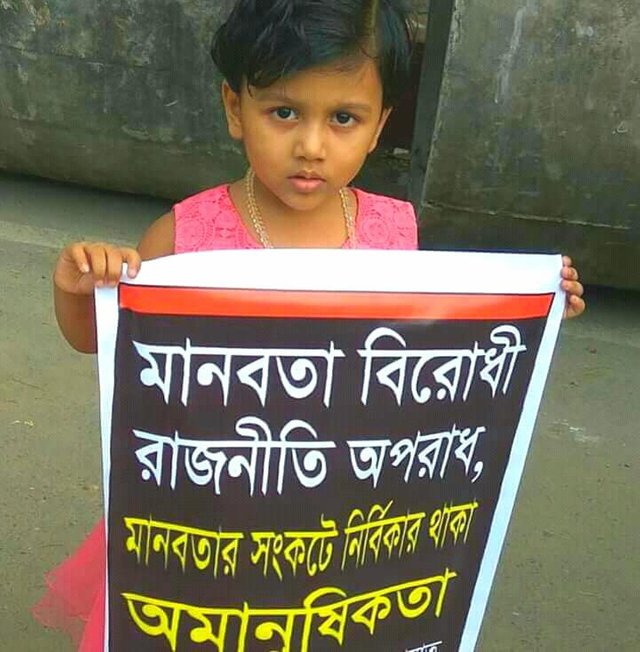 মানবতা বিরোধী
রাজনীতি অপরাধ,
মানবতার সংকটে নির্বিকার থাকা
অমানুষিকতা